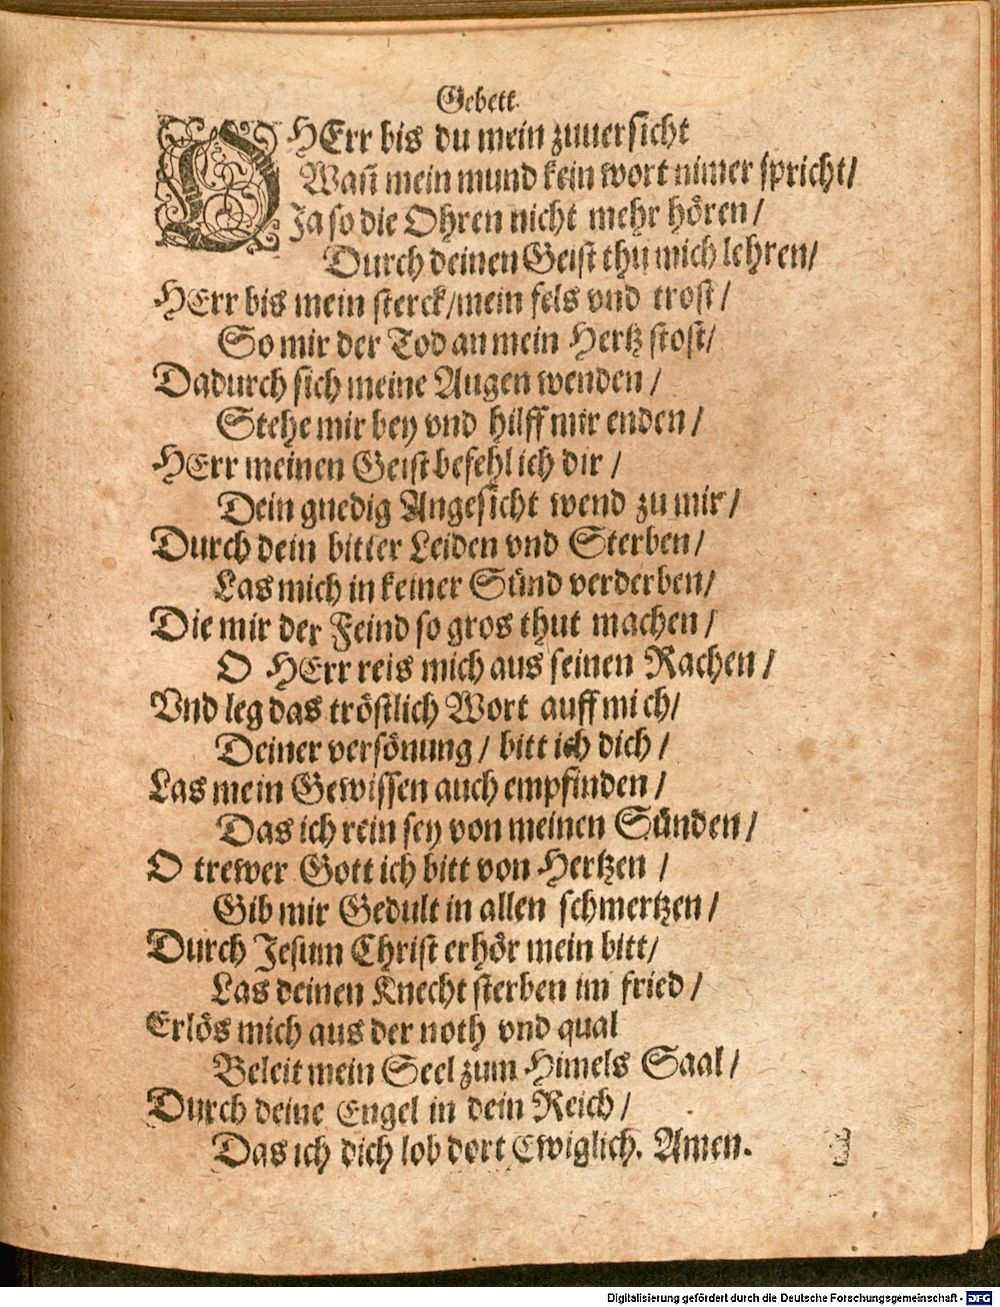 Gebett.
O HErr bis du mein zuuersicht
Wañ mein mund kein wort nimer spricht/
Ja so die Ohren nicht mehr hören/
Durch deinen Geist thu mich lehren/
HErr bis mein sterck/mein fels vnd trost/
So mir der Tod an mein Hertz stost/
Dadurch sich meine Augen wenden/
Stehe mir bey vnd hilff mir enden/
HErr meinen Geist befehl ich dir/
Dein gnedig Angesicht wend zu mir/
Durch dein bitter Leiden vnd Sterben/
Las mich in keiner Sünd verderben/
Die mir der Feind so gros thut machen/
O HErr reis mich aus seinen Rachen/
Vnd leg das tröstlich Wort auff mich/
Deiner versönung/ bitt ich dich/
Las mein Gewissen auch empfinden/
Das ich rein sey von meinen Sünden/
O trewer Gott ich bitt von Hertzen/
Gib mir Gedult in allen schmertzen/
Durch Jesum Christ erhör mein bitt/
Las deinen Knecht sterben im fried/
Erlös mich aus der noth vnd qual
Beleit mein Seel zum Himels Saal/
Durch deine Engel in dein Reich/
Das ich dich lob dort Ewiglich. Amen.
Digitalisierung gefördert durch die Deutsche Forschungsgemeinschaft - DFG